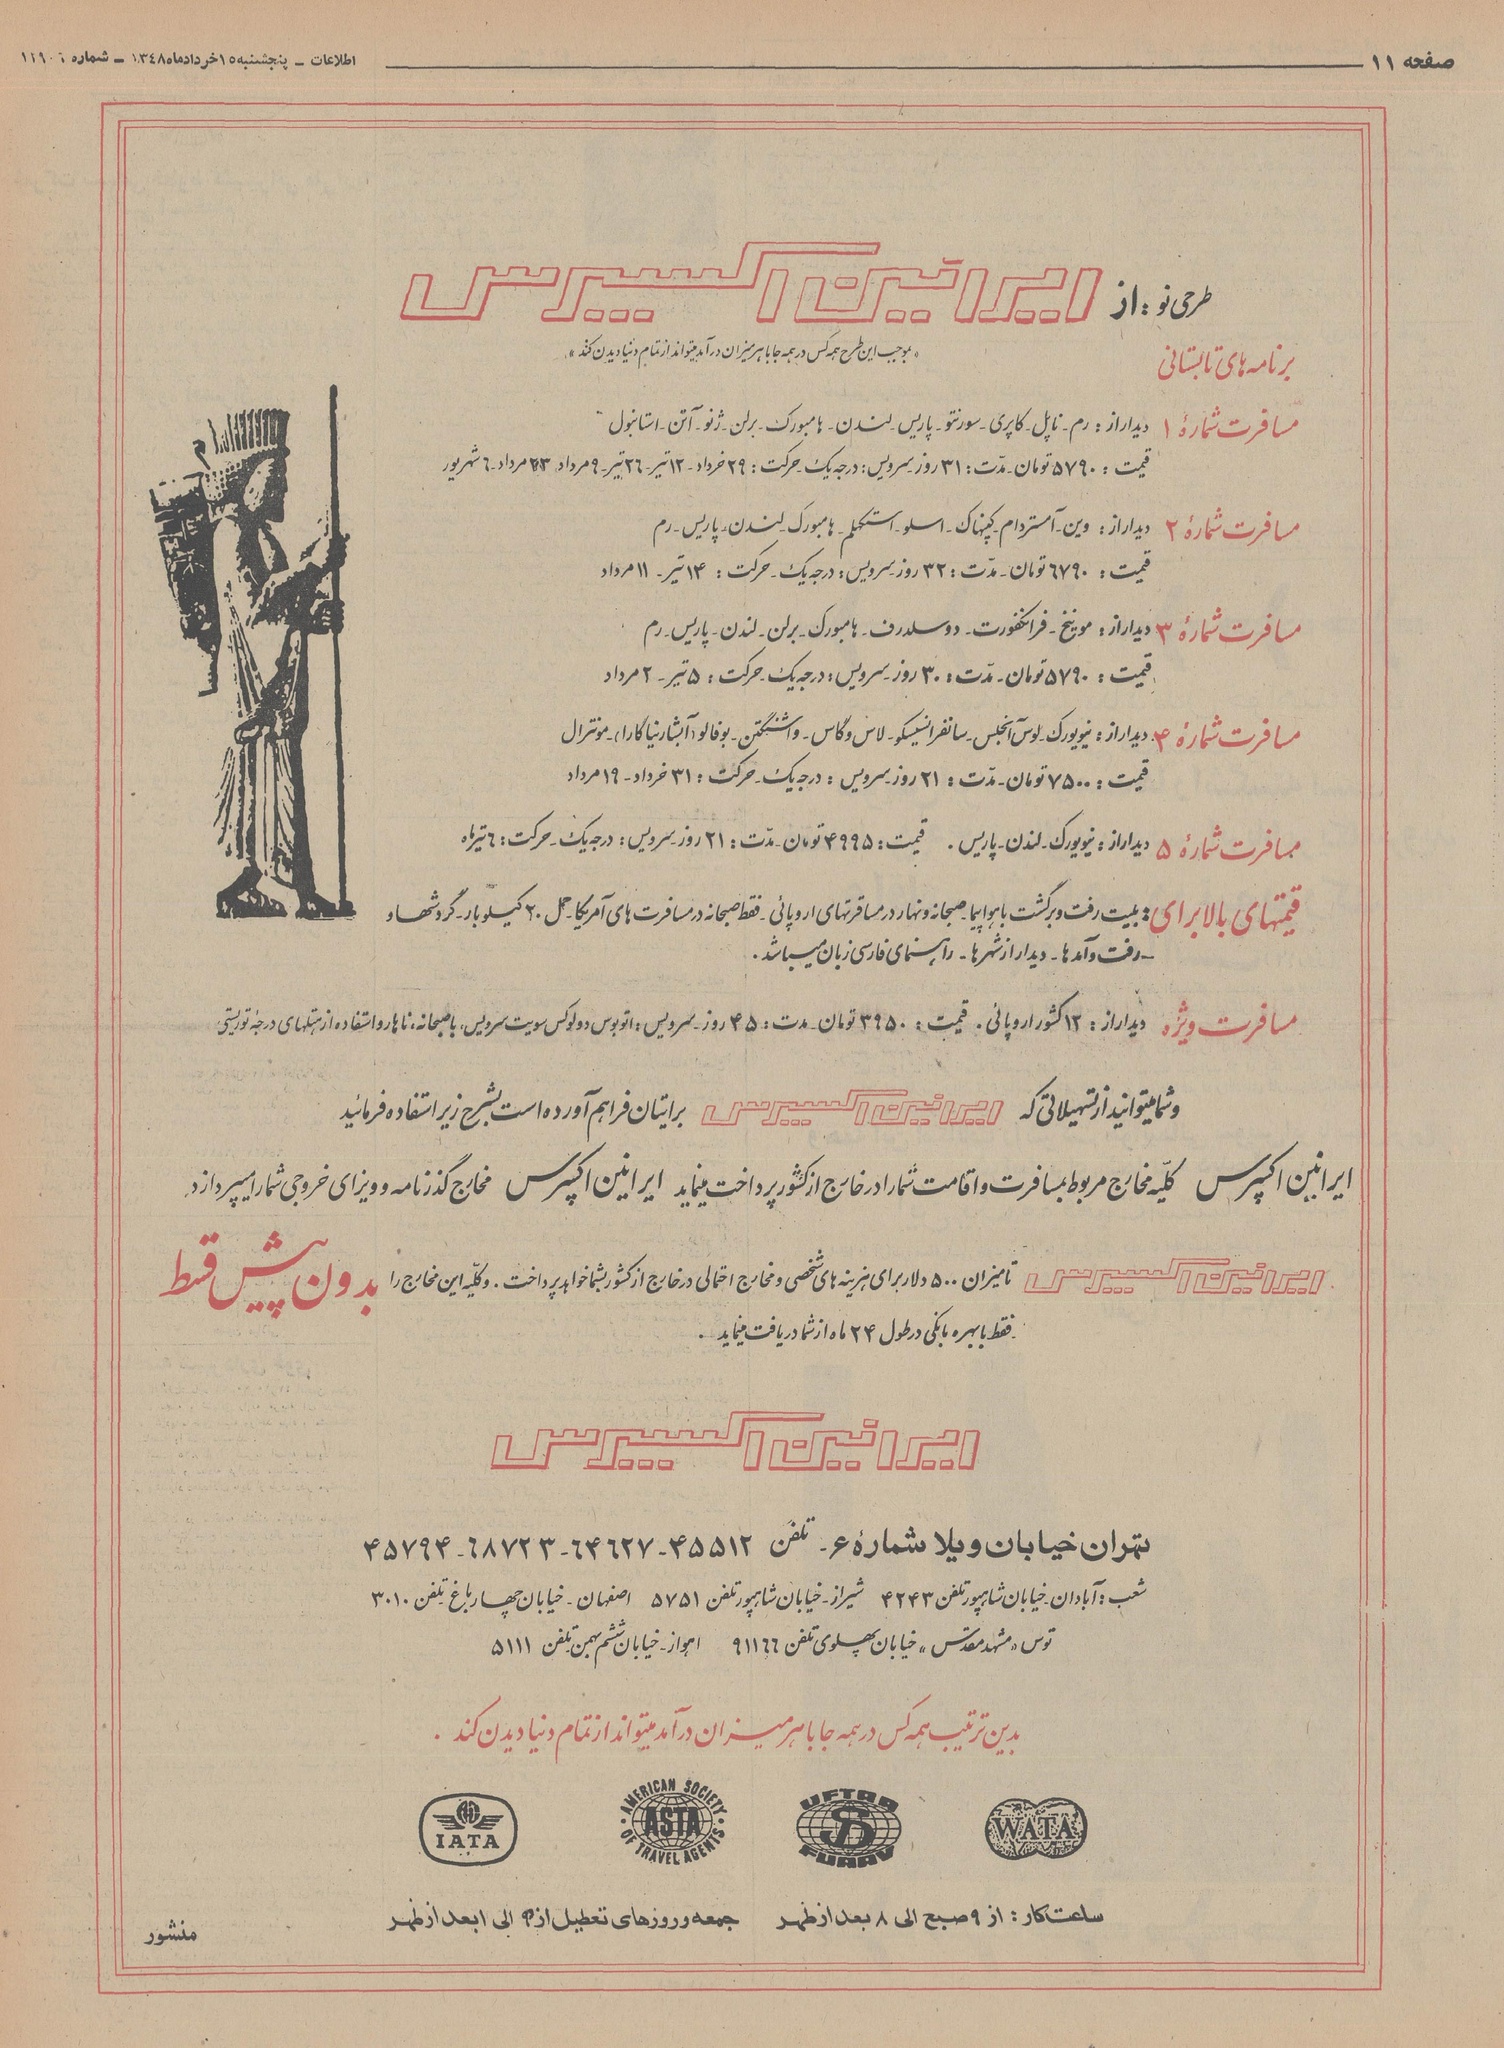 صفحه ۱۱
اطلاعات ـ پنجشنبه ۱۵ خرداد ماه ۱۳۴۸ ـ شماره
طرحی نو : از ایرانین اکسپرس
«بموجب این طرح همه کس در همه جا با هر میزان درآمد میتواند از تمام دنیا دیدن کند»
برنامه های تابستانی
مسافرت شمارهٔ ۱ دیدار از : رم ـ ناپل ـ کاپری ـ سورنتو ـ پاریس ـ لندن ـ هامبورک ـ برلن ـ ژنو ـ آتن ـ استانبول
قیمت : ۵۷۹۰ تومان ـ مدّت : ۳۱ روز ـ سرویس : درجه یک ـ حرکت : ۲۹ خرداد ـ ۱۲ تیر ـ ۲۶ تیر ـ ۹ مرداد ـ ۲۳ مرداد ـ ۶ شهریور
مسافرت شمارهٔ ۲ دیدار از : وین ـ آمستردام ـ کپنهاک ـ اسلو ـ استکهلم ـ هامبورک ـ لندن ـ پاریس ـ رم
قیمت : ۶۷۹۰ تومان ـ مدّت : ۳۲ روز ـ سرویس : درجه یک ـ حرکت : ۱۴ تیر ـ ۱۱ مرداد
مسافرت شمارهٔ ۳ دیدار از : مونیخ ـ فرانکفورت ـ دوسلدرف ـ هامبورک ـ برلن ـ لندن ـ پاریس ـ رم
قیمت : ۵۷۹۰ تومان ـ مدّت : ۳۰ روز ـ سرویس : درجه یک ـ حرکت : ۵ تیر ـ ۲ مرداد
مسافرت شمارهٔ ۴ دیدار از : نیویورک ـ لوس آنجلس ـ سانفرانسیسکو ـ لاس وگاس ـ واشنگتن ـ بوفالو (آبشار نیاگارا) ـ مونترال
قیمت : ۷۵۰۰ تومان ـ مدّت : ۲۱ روز ـ سرویس : درجه یک ـ حرکت : ۳۱ خرداد ـ ۱۹ مرداد
مسافرت شمارهٔ ۵ دیدار از : نیویورک ـ لندن ـ پاریس . قیمت : ۴۹۹۵ تومان ـ مدّت : ۲۱ روز ـ سرویس : درجه یک ـ حرکت : ۶ تیرماه
قیمتهای بالا برای : بلیت رفت و برگشت با هواپیما ـ صبحانه و نهار در مسافرتهای اروپائی ـ فقط صبحانه در مسافرت های آمریکا ـ حمل ۲۰ کیلو بار ـ گردشها و
ـ رفت و آمدها ـ دیدار از شهرها ـ راهنمای فارسی زبان میباشد .
مسافرت ویژه دیدار از : ۱۲ کشور اروپائی . قیمت : ۳۹۵۰ تومان ـ مدت : ۴۵ روز ـ سرویس : اتوبوس دولوکس سویت سرویس، با صبحانه، ناهار و استفاده از هتلهای درجه توریستی
و شما میتوانید از تسهیلاتی که ایرانین اکسپرس برایتان فراهم آورده است بشرح زیر استفاده فرمائید
ایرانین اکسپرس کلیّه مخارج مربوط بمسافرت و اقامت شما را در خارج از کشور پرداخت مینماید ایرانین اکسپرس مخارج گذرنامه و ویزای خروجی شما را میپردازد.
ایرانین اکسپرس تا میزان ۵۰۰ دلار برای هزینه های شخصی و مخارج احتمالی در خارج از کشور بشما خواهد پرداخت . و کلیّه این مخارج را بدون پیش قسط
فقط با بهره بانکی در طول ۲۴ ماه از شما دریافت مینماید .
ایرانین اکسپرس
تهران خیابان ویلا شمارهٔ ۶ـ تلفن ۴۵۵۱۲ـ۶۴۶۲۷ـ۶۸۷۲۳ـ۴۵۷۹۴
شعب : آبادان ـ خیابان شاهپور تلفن ۴۲۴۳ شیراز ـ خیابان شاهپور تلفن ۵۷۵۱ اصفهان ـ خیابان چهارباغ ـ تلفن ۳۰۱۰
توس «مشهد مقدّس» خیابان پهلوی تلفن ۹۱۱۶۶ اهواز ـ خیابان ششم بهمن تلفن ۵۱۱۱
بدین ترتیب همه کس در همه جا با هر میزان درآمد میتواند از تمام دنیا دیدن کند .
IATA
AMERICAN SOCIETY OF TRAVEL AGENTS
ASTA
UFTAA
FUAAV
WATA
ساعت کار : از ۹ صبح الی ۸ بعد از ظهر جمعه و روزهای تعطیل از ۹ الی ۱ بعد از ظهر
منشور